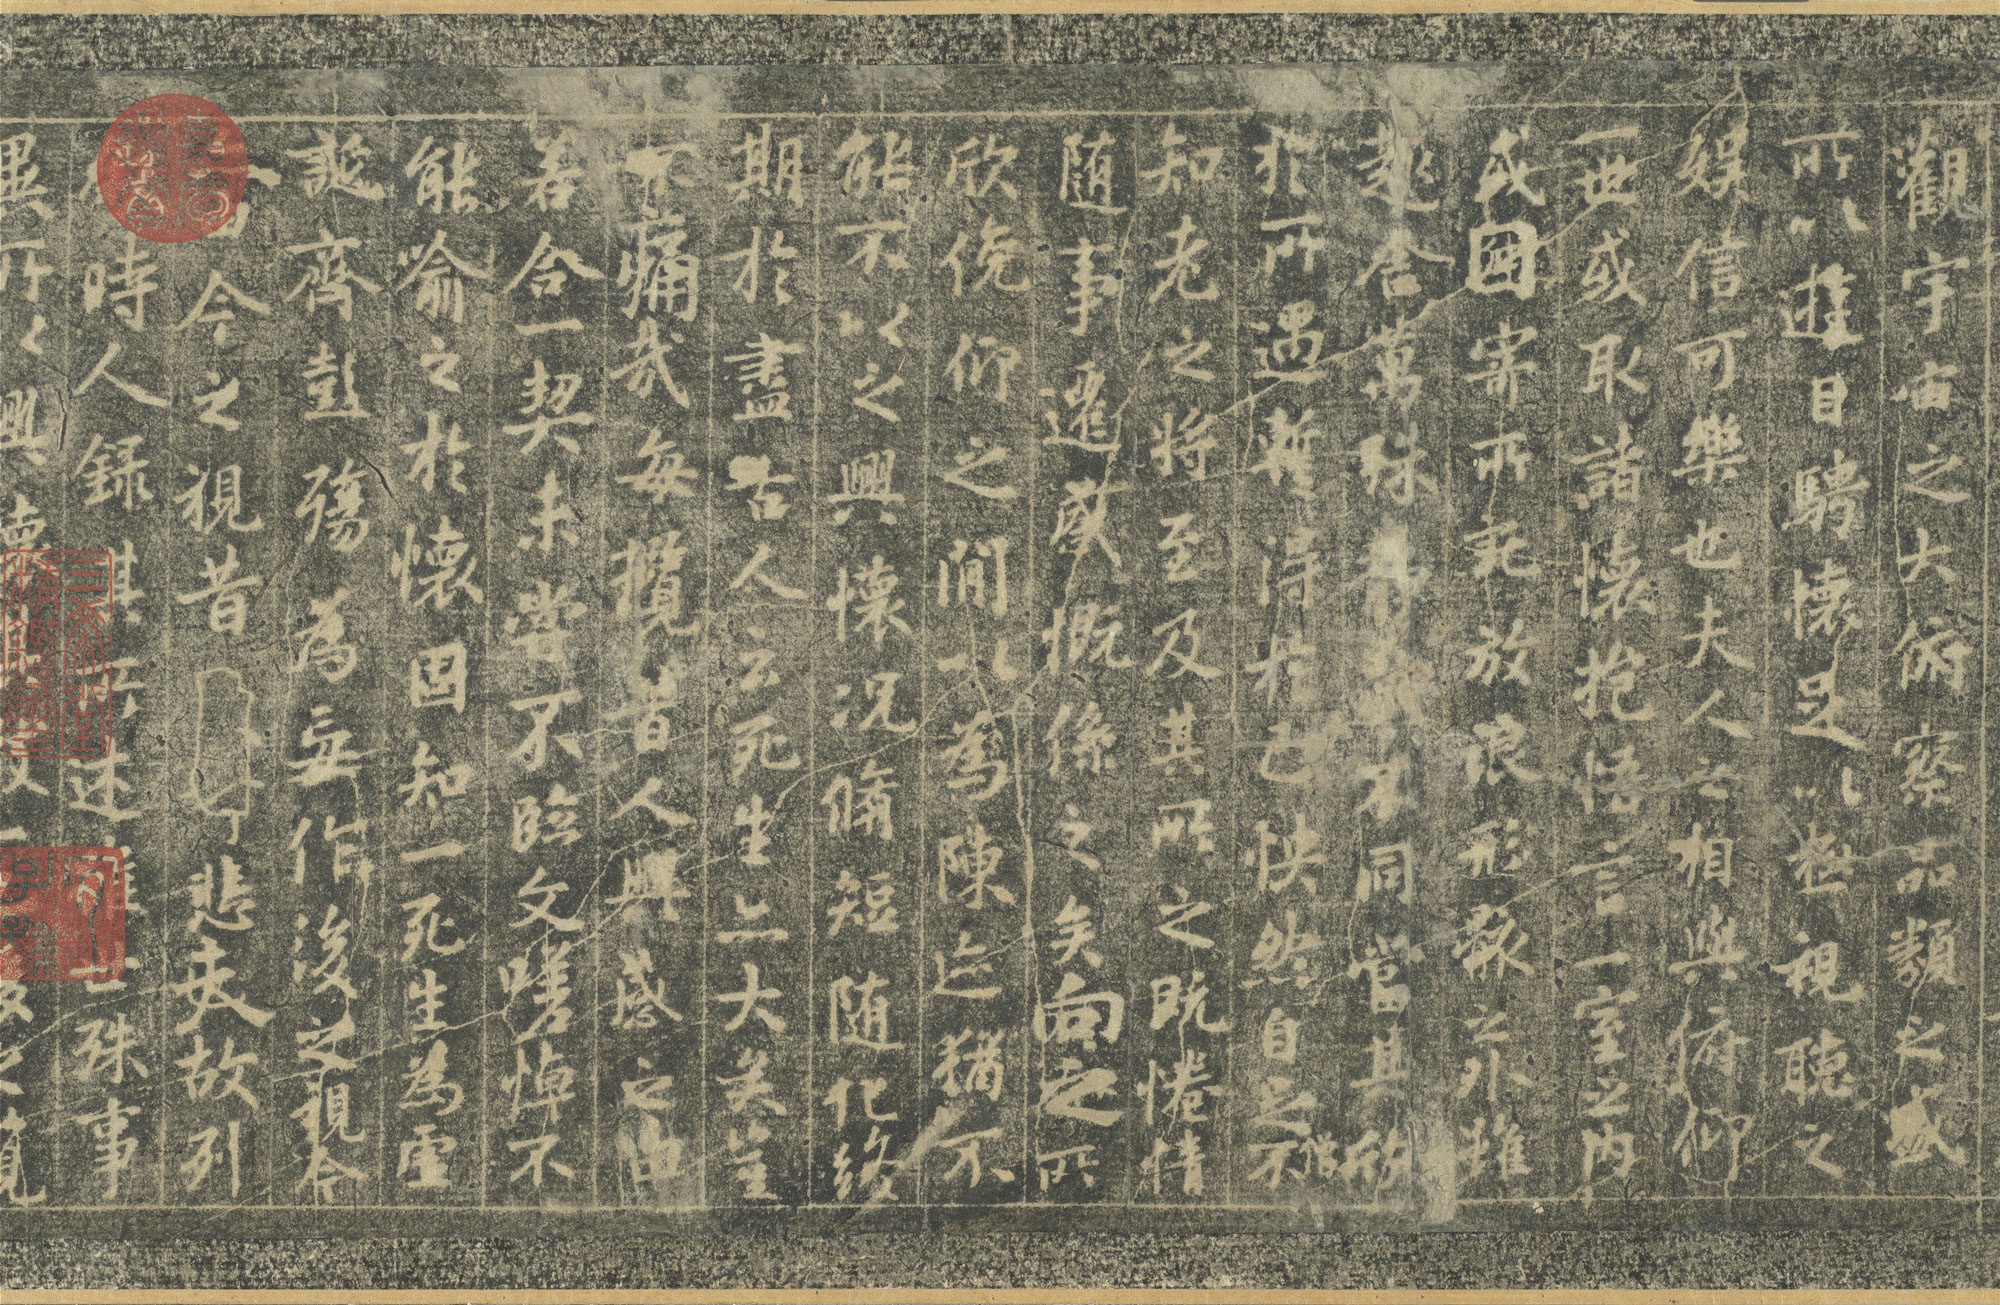 觀宇宙之大俯察品類之盛
所以遊目騁懷足以極視聽之
娛信可樂也夫人之相與俯仰
一世或取諸懷抱悟言一室之內
或因寄所託放浪形骸之外雖
趣舍萬殊靜躁不同當其欣
於所遇暫得於己快然自足不
知老之將至及其所之既惓情
隨事遷感慨係之矣向之所
欣俛仰之閒以為陳迹猶不
能不以之興懷況脩短隨化終
期於盡古人云死生亦大矣豈
不痛哉每攬昔人興感之由
若合一契未嘗不臨文嗟悼不
能喻之於懷固知一死生為虛
誕齊彭殤為妄作後之視今
今之視昔 悲夫故列
時人錄其所述 世殊事
異所以興懷